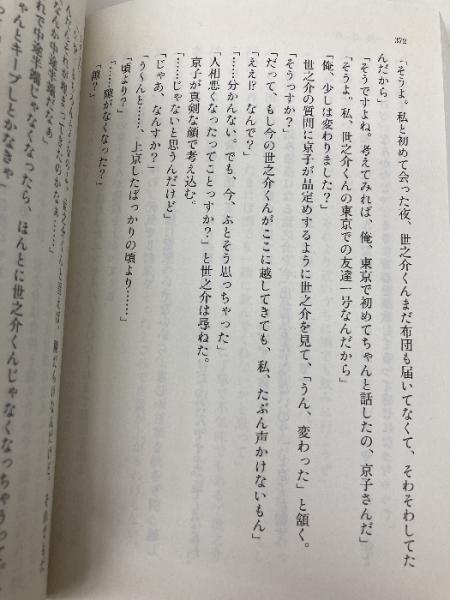 372
「そうよ。私と初めて会った夜、世之介くんまだ布団も届いてなくて、そわそわしてた
んだから」
「そうですよね。考えてみれば、俺、東京で初めてちゃんと話したの、京子さんだ」
「そうよ。私、世之介くんの東京での友達一号なんだから」
「俺、少しは変わりました?」
世之介の質問に京子が品定めするように世之介を見て、「うん、変わった」と頷く。
「そうっすか?」
「だって、もし今の世之介くんがここに越してきても、私、たぶん声かけないもん」
「ええ!? なんで?」
「……分かんない。でも、今、ふとそう思っちゃった」
「人相悪くなったってことっすか?」と世之介は尋ねた。
京子が真剣な顔で考え込む。
「……じゃないと思うんだけど」
「じゃあ、なんすか?」
「う〜んと……、上京したばっかりの頃より……」
「頃より?」
「……隙がなくなった?」
「隙?」
なんか中途半端だなぁ
れで中途半端じゃなくなったら、ほんとに世之介くんじゃなくなっちゃうって
ゃんとキープしとかなきゃ」